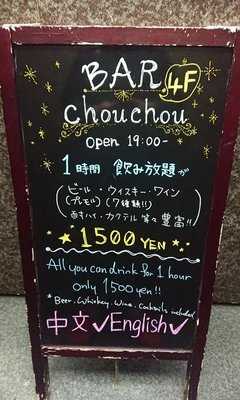 BAR 4F
chouchou
open 19:00-
1時間 飲み放題が
ビール・ウィスキー・ワイン
(プレモル) (7種類!!)
カクテル 等々 豊富!!
1500 YEN
All you can drink for 1 hour
only 1500yen!!
*Beer, Whiskey, Wine, Cocktails included
中文✓English✓